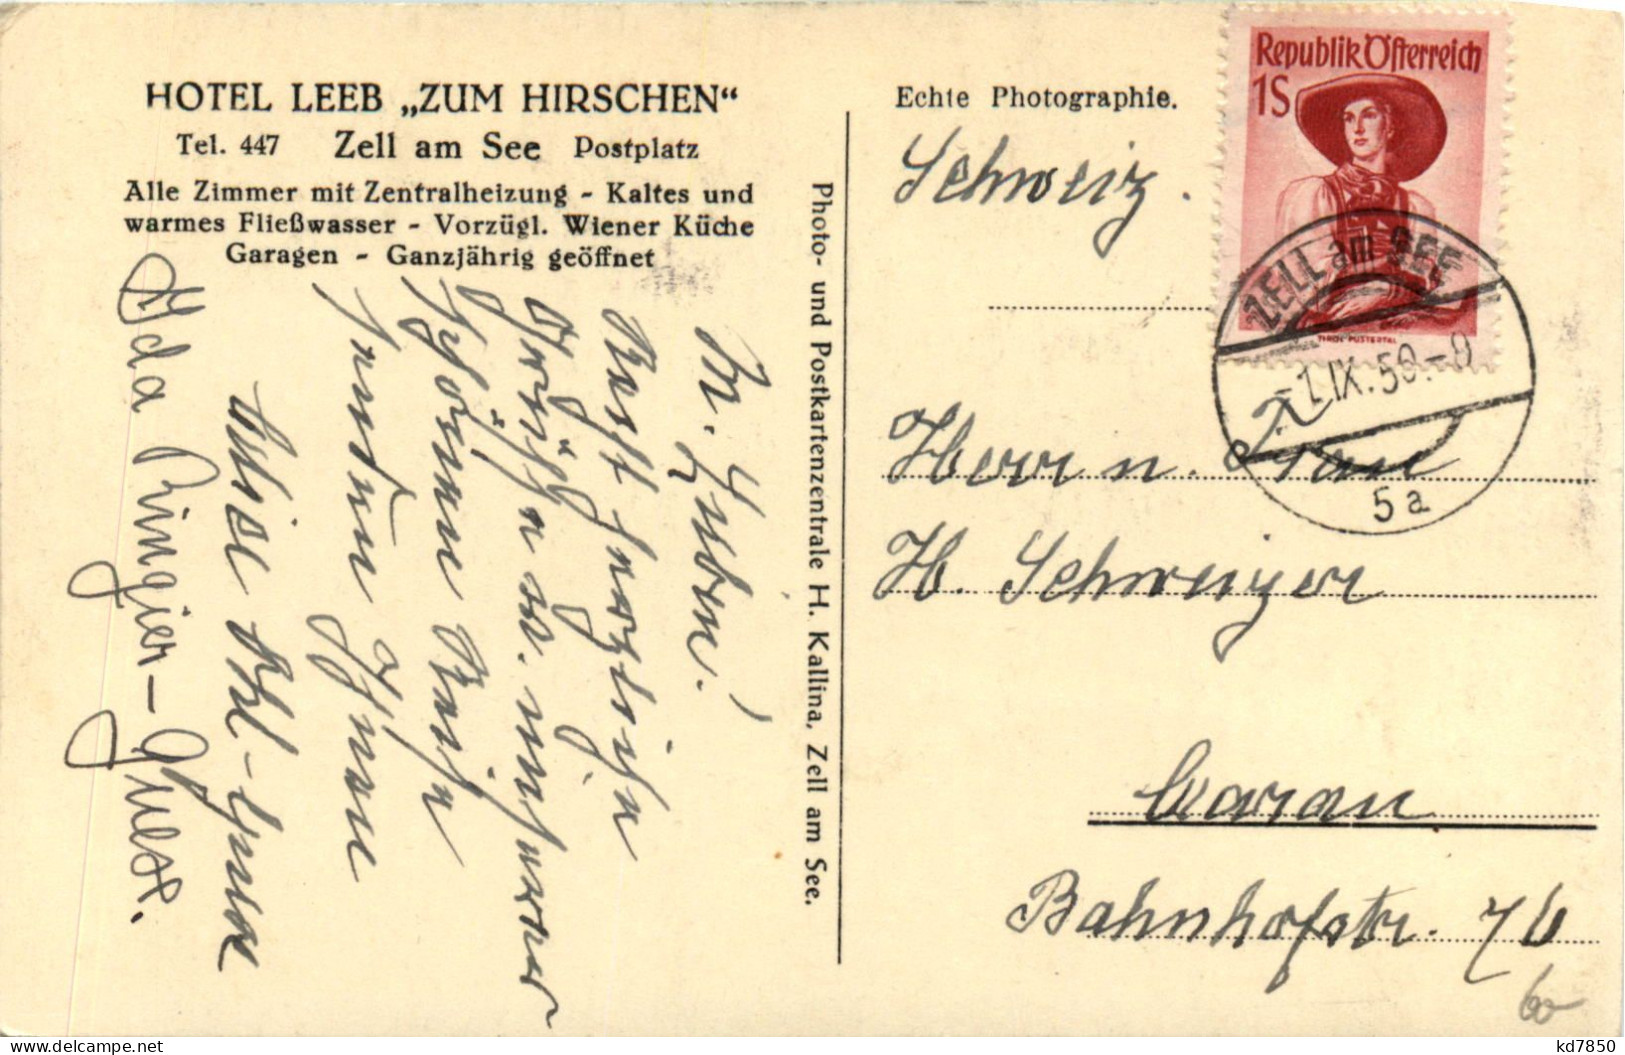 HOTEL LEEB „ZUM HIRSCHEN“
Tel. 447 Zell am See Postplatz
Alle Zimmer mit Zentralheizung - Kaltes und
warmes Fließwasser - Vorzügl. Wiener Küche
Garagen - Ganzjährig geöffnet
Recht herzliche
Grüße v. unserer
schönen Reise
senden Ihnen
Ida Ringier-
Photo- und Postkartenzentrale H. Kallina, Zell am See.
Echte Photographie.
Republik Österreich
1S
TIROL PUSTERTAL
ZELL am SEE
-1.IX.50.-8
5a
Schweiz.
Herrn u. Frau
H. Schweizer
Aarau
Bahnhofstr. 76
60
kd7850